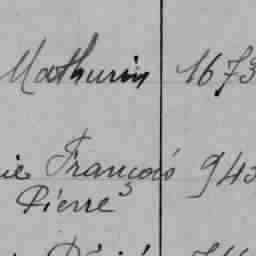 Mathurin 1673
ie François 943
Pierre